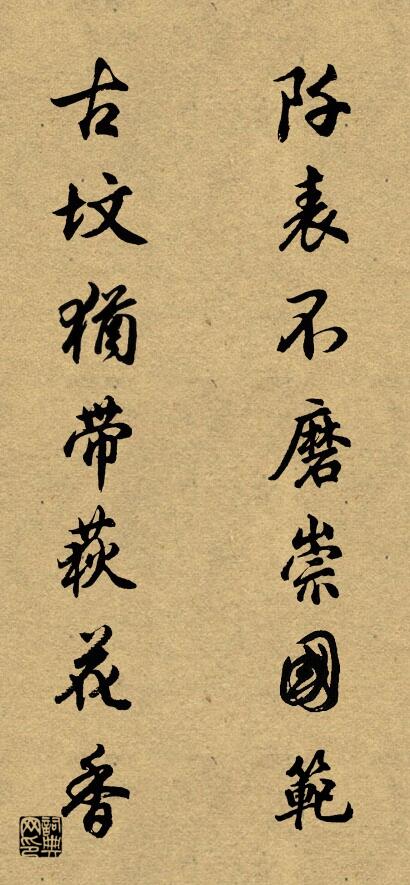 阡表不磨崇國範
古坟猶带萩花香
詞典网印